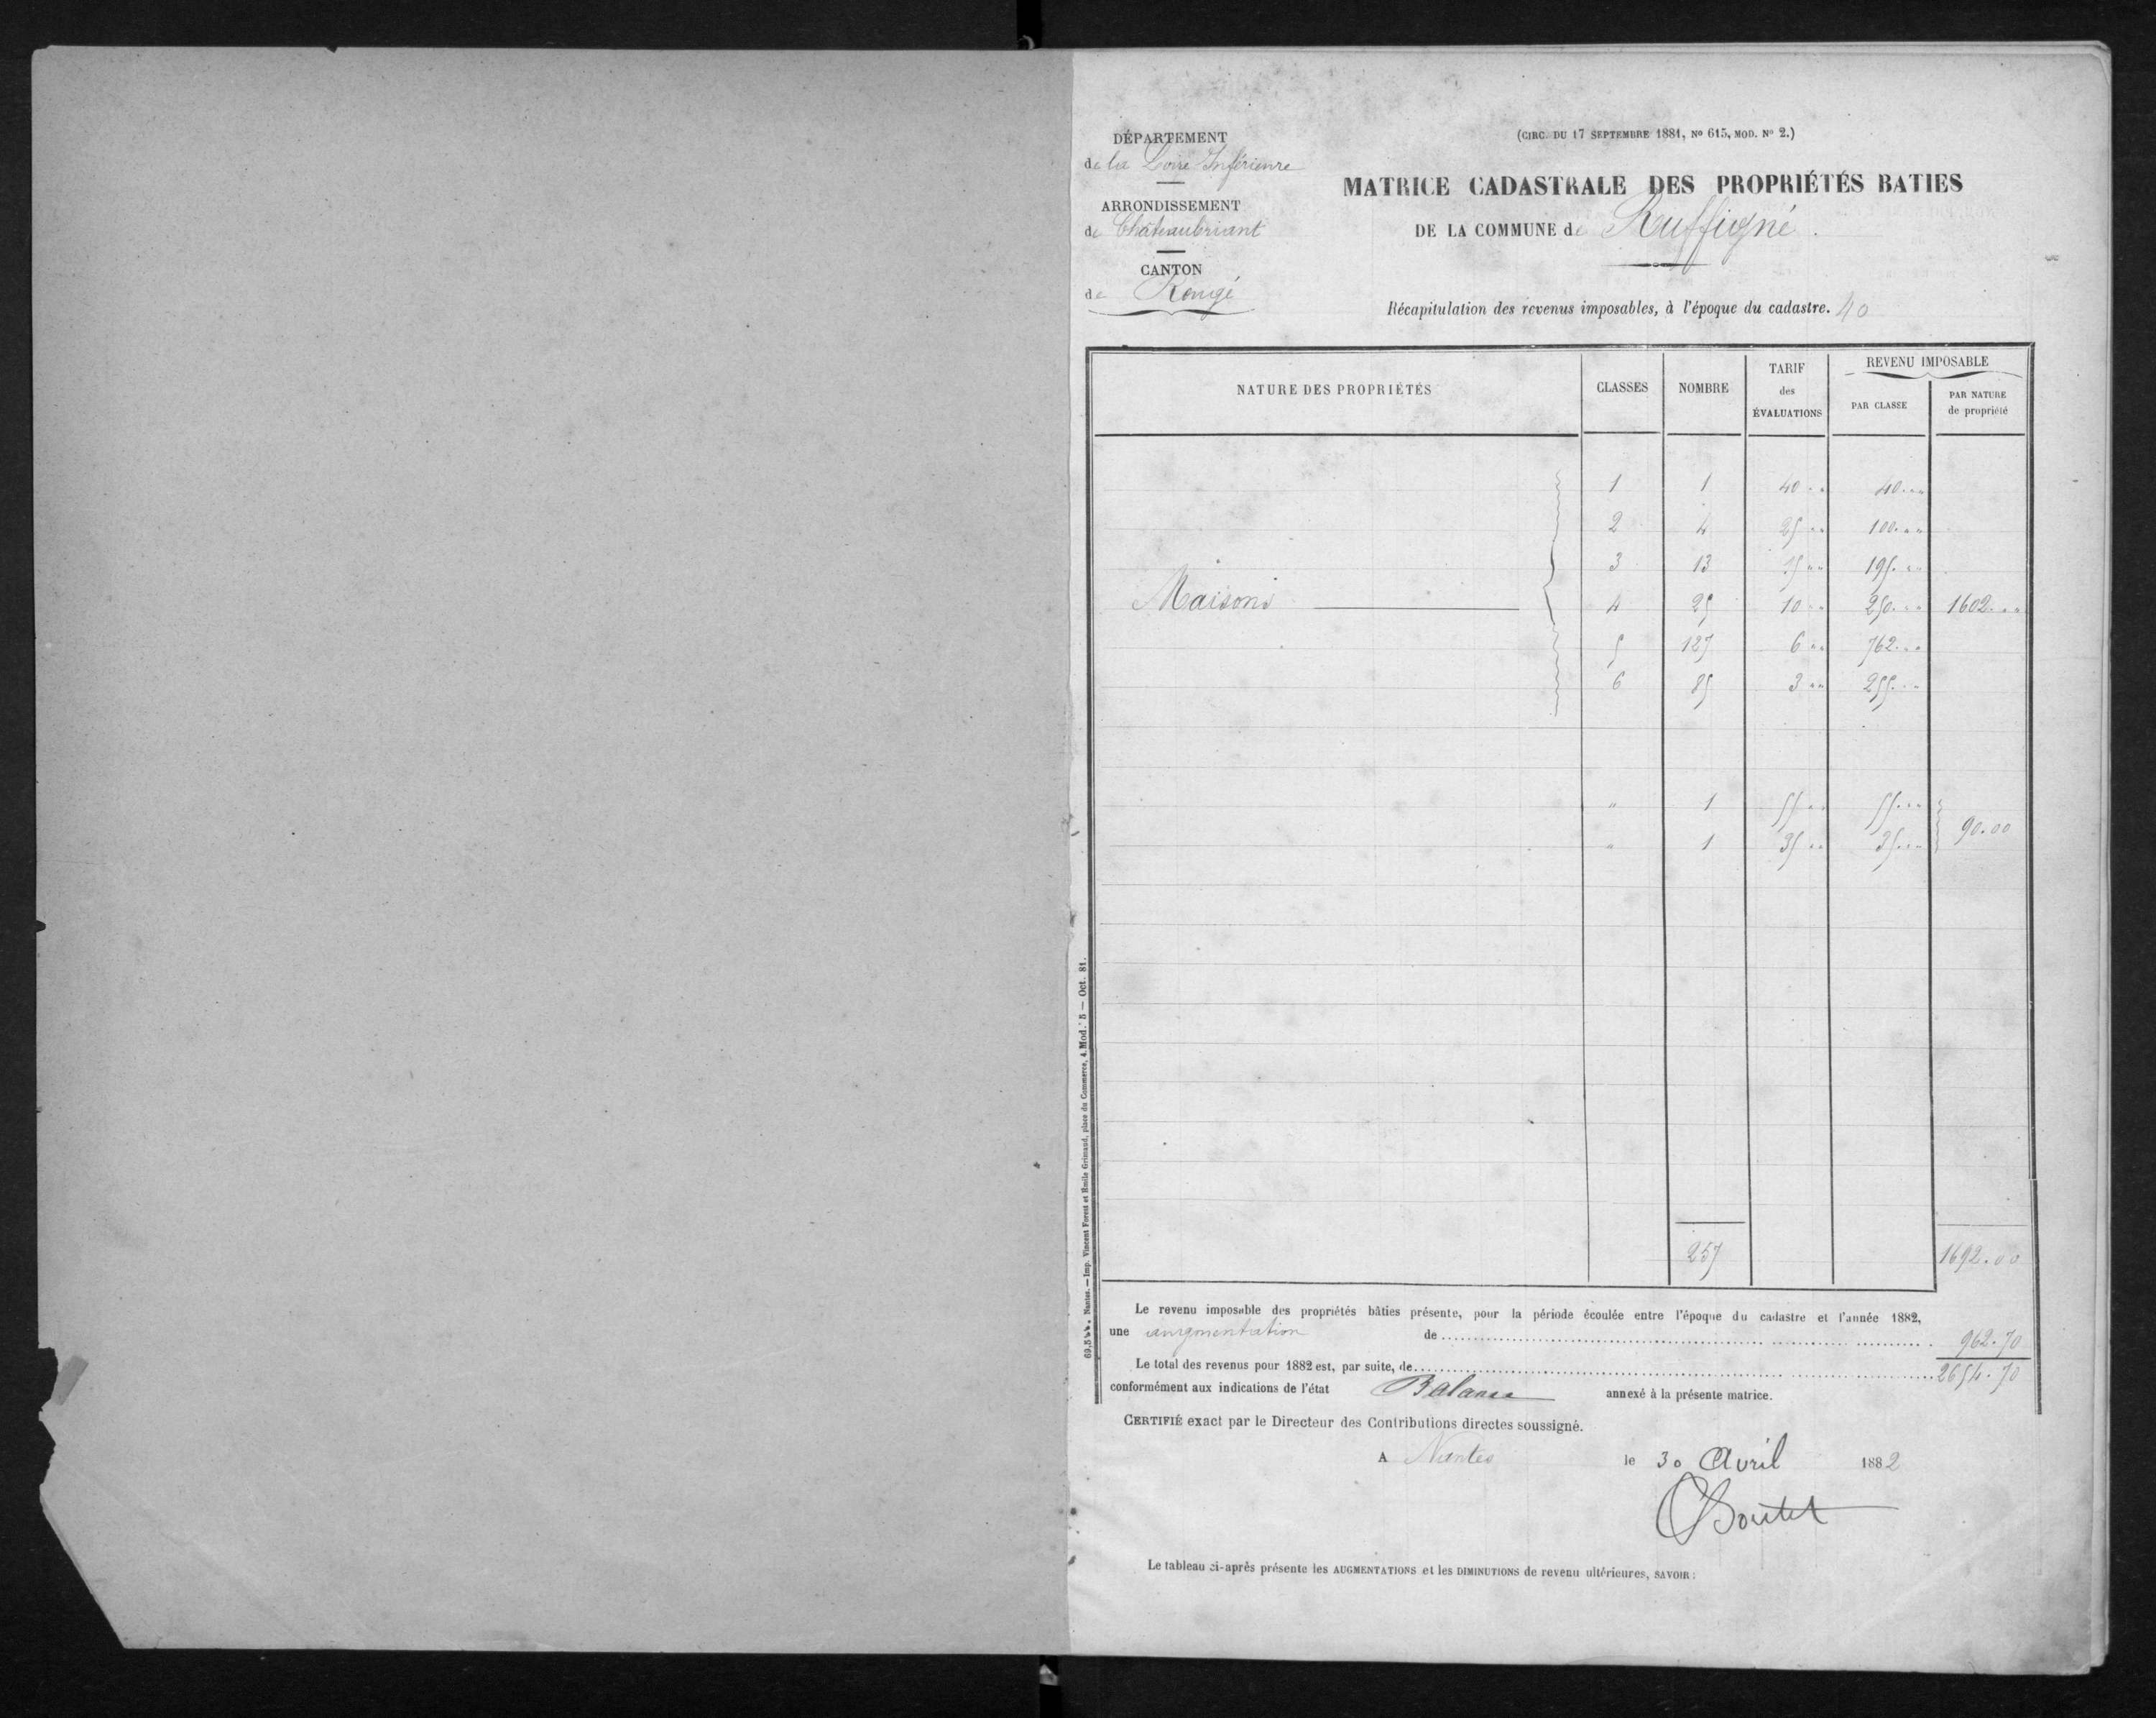 DÉPARTEMENT
de la Loire Inférieure
ARRONDISSEMENT
de Châteaubriant
CANTON
de Rougé
(CIRC. DU 17 SEPTEMBRE 1881, No 615, MOD. No 2.)
MATRICE CADASTRALE DES PROPRIÉTÉS BATIES
DE LA COMMUNE de Ruffigné.
Récapitulation des revenus imposables, à l'époque du cadastre. 40
NATURE DES PROPRIÉTÉS CLASSES NOMBRE TARIF des ÉVALUATIONS REVENU IMPOSABLE
PAR CLASSE PAR NATURE de propriété
1 1 40 " 40 "
2 4 25 " 100 "
3 13 15 " 195 "
Maisons 4 25 10 " 250 " 1602 "
5 127 6 " 762 "
6 85 3 " 255 "
" 1 55 " 55 "
90.00
" 1 35 " 35 "
257 1692.00
Le revenu imposable des propriétés bâties présente, pour la période écoulée entre l'époque du cadastre et l'année 1882,
une augmentation de 962.70
Le total des revenus pour 1882 est, par suite, de 2654.70
conformément aux indications de l'état Balance annexé à la présente matrice.
CERTIFIÉ exact par le Directeur des Contributions directes soussigné.
A Nantes le 30 Avril 1882
Boutet
Le tableau ci-après présente les AUGMENTATIONS et les DIMINUTIONS de revenu ultérieures, SAVOIR :
Nantes. — Imp. Vincent Forest et Emile Grimaud, place du Commerce, 4. Mod. 5 — Oct. 81.